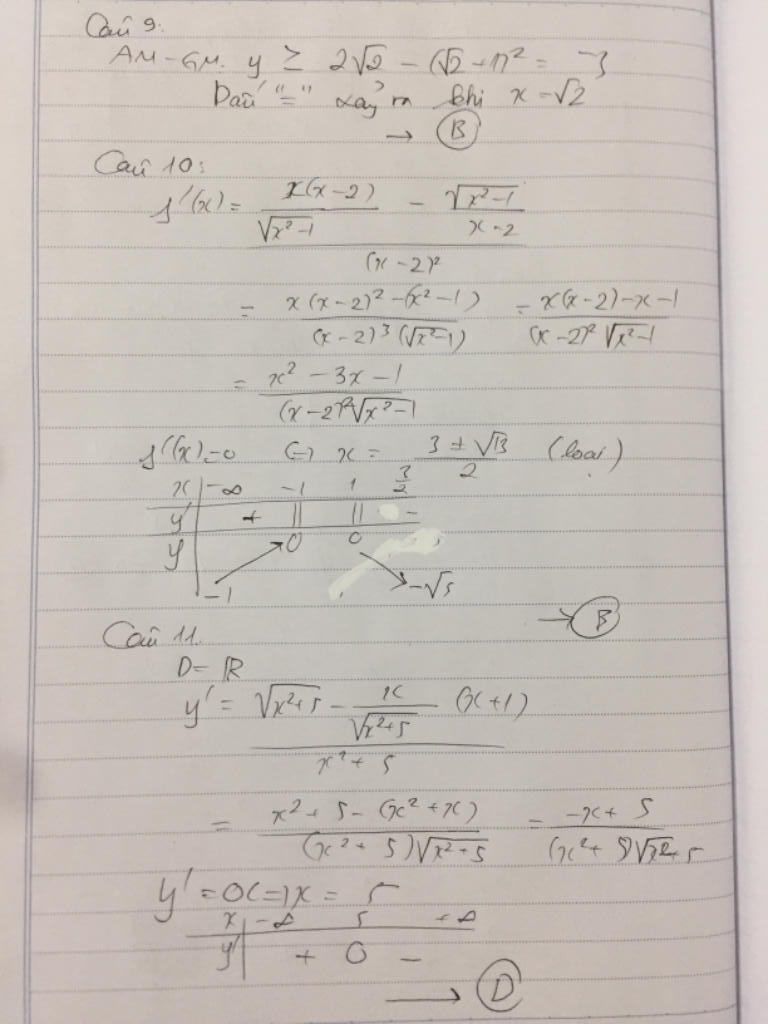 Câu 9.
AM-GM. y ≥ 2√2 - (√2 + 1)² = -3
Dấu "=" xảy ra khi x = √2
→ B
Câu 10:
f'(x) = (x(x-2)/√(x²-1) - √(x²-1)/(x-2)) / (x-2)²
= (x(x-2)² - (x²-1)) / ((x-2)³(√(x²-1))) = (x(x-2) - x - 1) / ((x-2)²√(x²-1))
= (x² - 3x - 1) / ((x-2)²√(x²-1))
f'(x) = 0 (=) x = (3 ± √13)/2 (loại)
x | -∞ -1 1 3/2
y' | + || || -
y | 0 0
-1 -√5
→ B
Câu 11.
D = ℝ
y' = (√(x²+5) - x/√(x²+5) (x+1)) / (x² + 5)
= (x² + 5 - (x² + x)) / ((x² + 5)√(x²+5)) = (-x + 5) / ((x² + 5)√(x²+5))
y' = 0 (=) x = 5
x | -∞ 5 +∞
y' | + 0 -
→ D